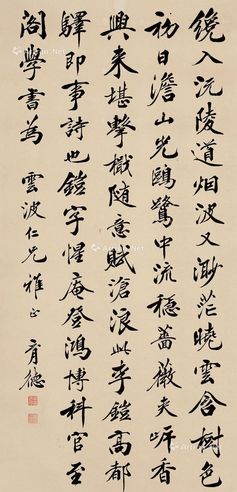 纔入沅陵道烟波又渺茫曉雲含樹色
初日澹山光鷗鷺中流穩薔薇夾岸香
興來堪擊楫隨意賦滄浪此李鎧高都
驛即事詩也鎧字惺庵登鴻博科官至
閣學書為 雲波仁兄雅正 育德